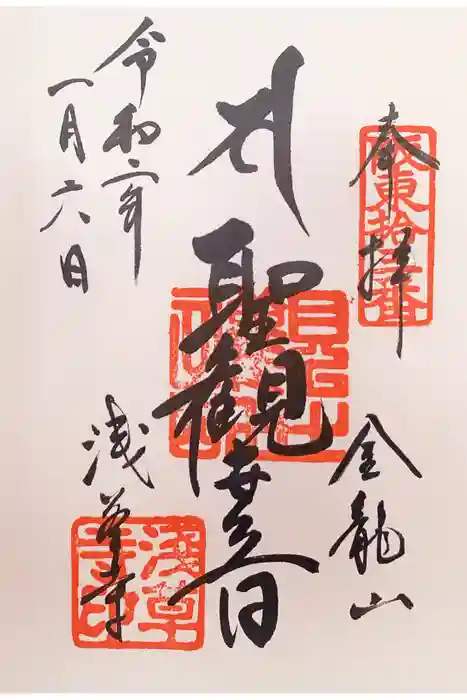 奉拝
坂東拾三番
金龍山
聖観世音
浅草寺
浅草寺印
令和二年
一月六日